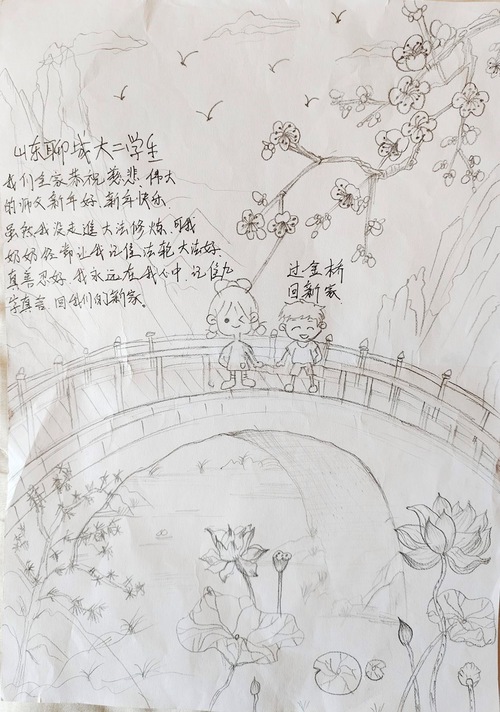 山东聊城大二学生
我们全家恭祝慈悲伟大
的师父新年好,新年快乐
虽然我没走進大法修炼,可我
奶奶经常让我记住,法轮大法好
真善忍好,我永远在我心中,记住九
字真言,回我们的新家。
过金桥
回新家